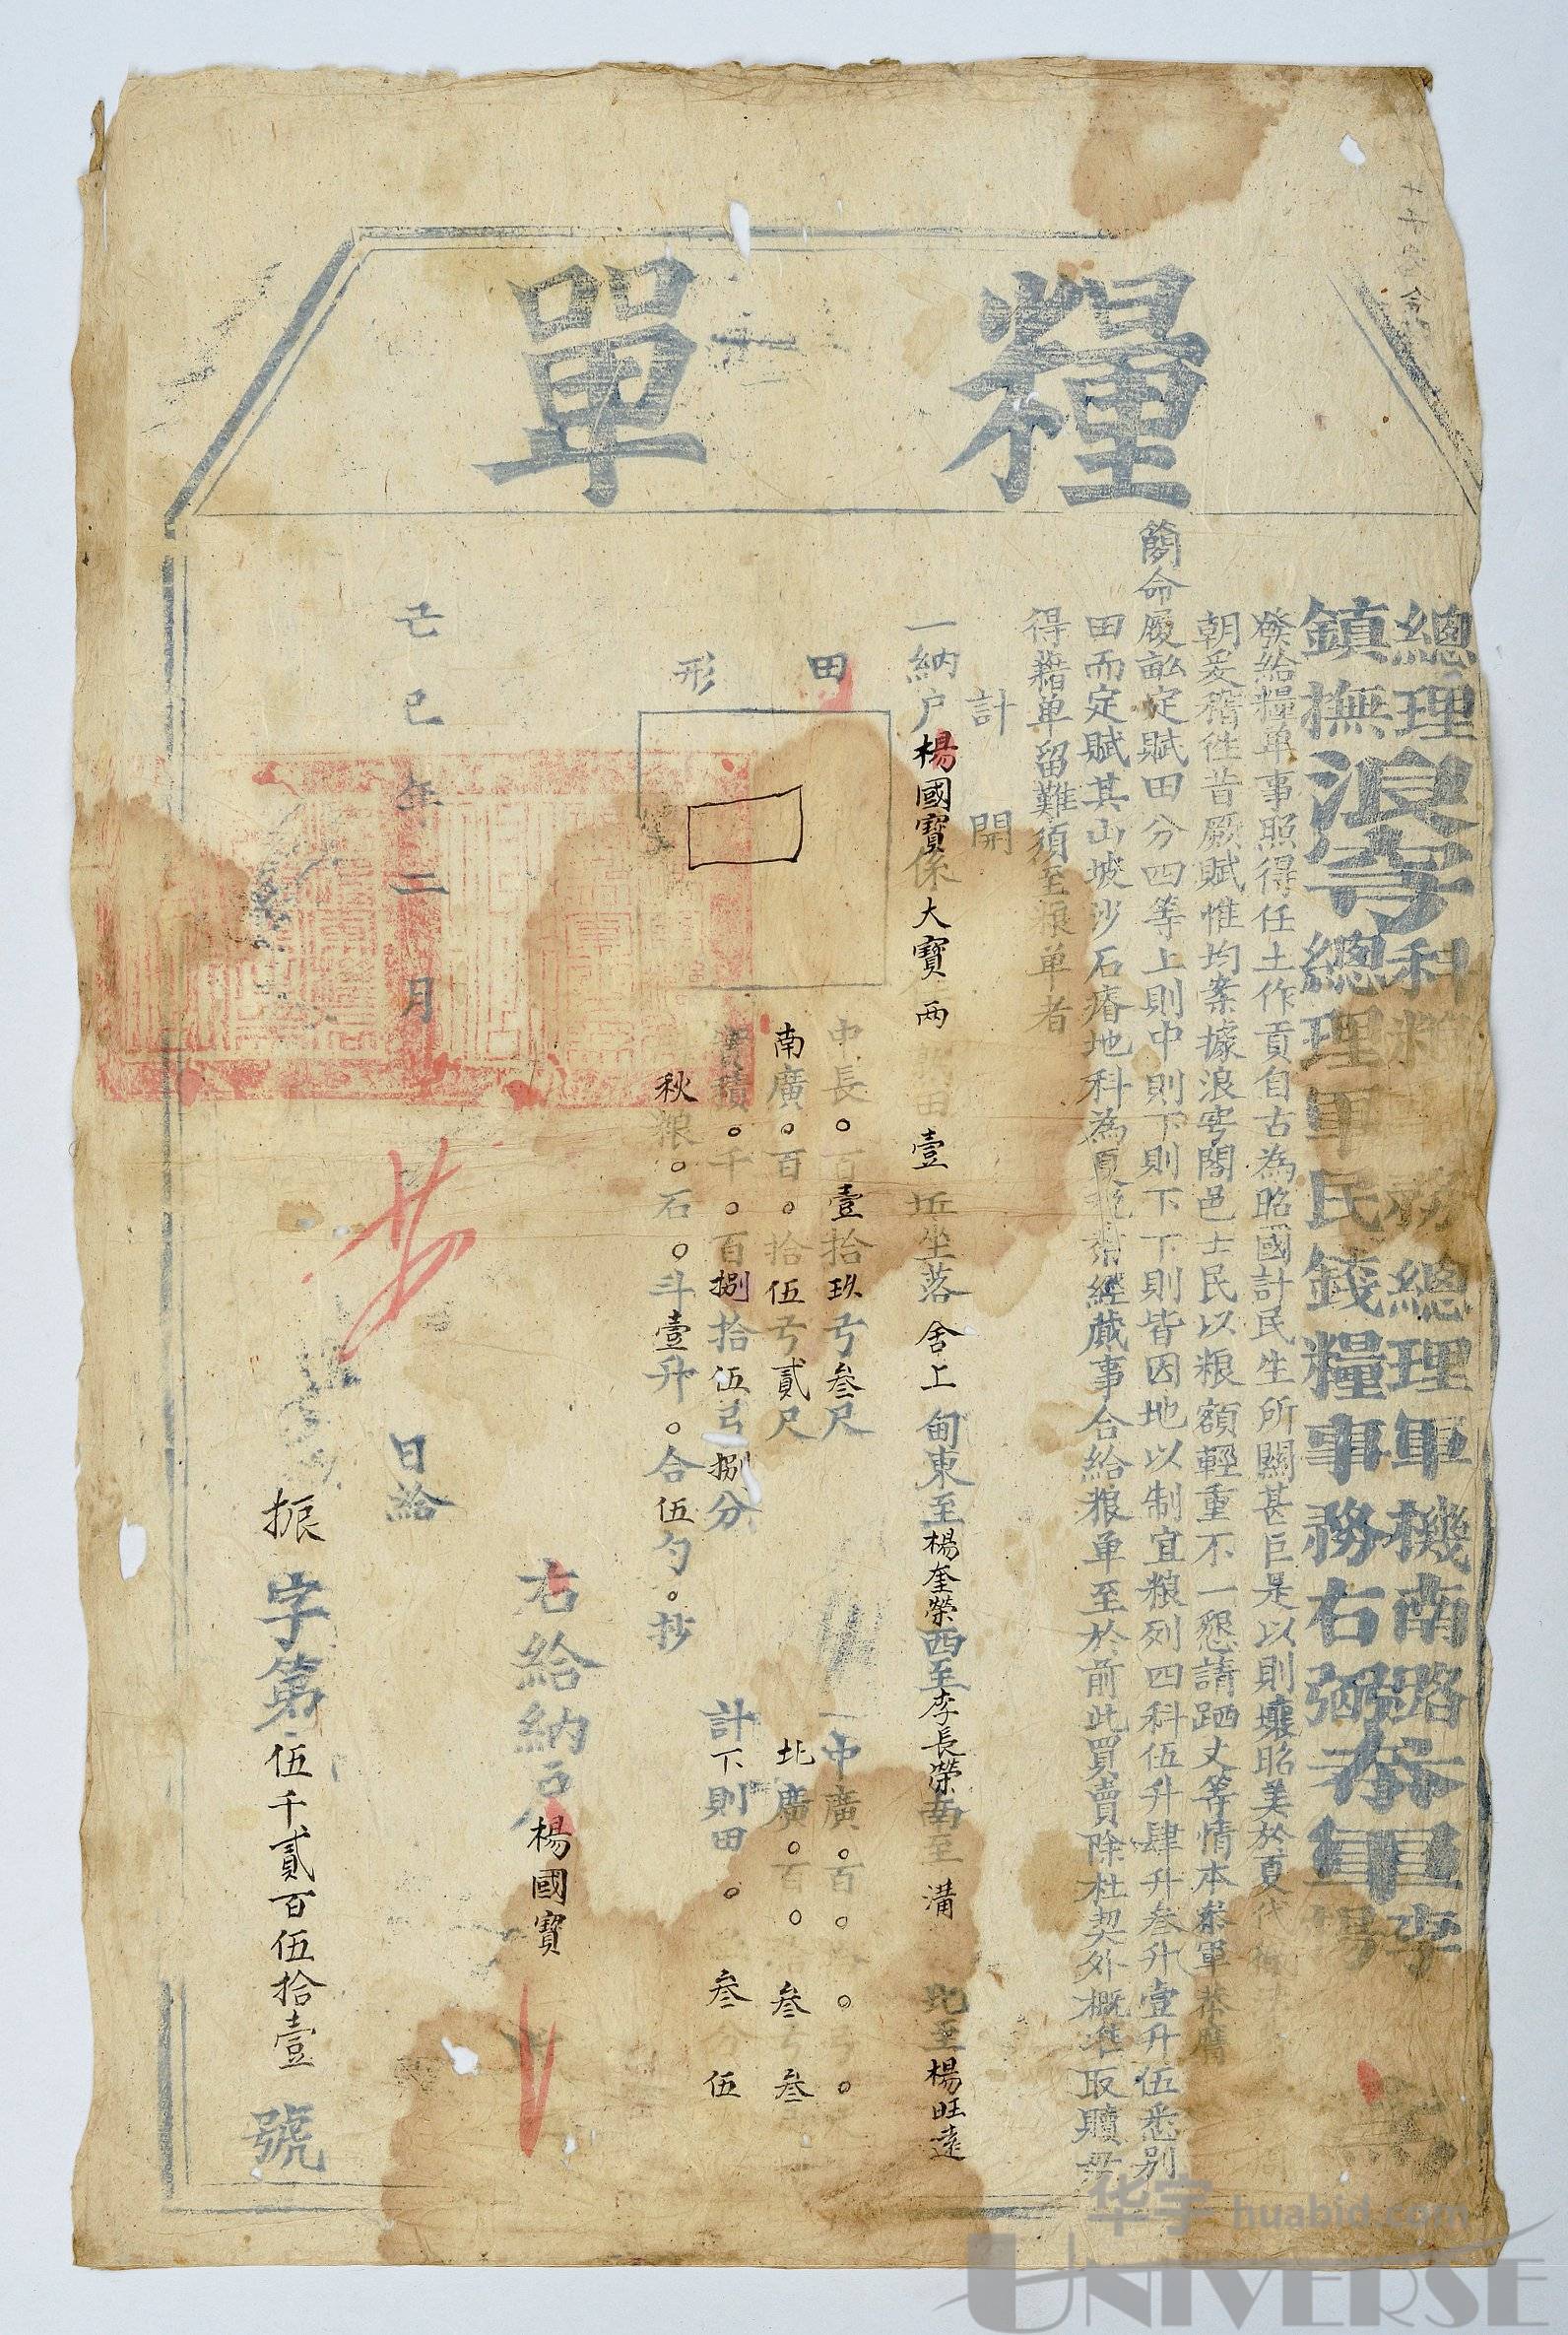 糧單
總理糧務總理軍機南路叅軍李
鎮撫浪穹總理軍民錢糧事務右弼叅軍楊 為
發給糧单事照得任土作貢自古為昭國計民生所關甚巨是以則壤昭美於夏代
朝爰稽徃昔厥賦惟均案據浪穹閤邑士民以粮額輕重不一懇請踋丈等情本叅軍恭膺
簡命履畝定賦田分四等上則中則下則下下則皆因地以制宜粮列四科伍升肆升叁升壹升伍悉别
田而定賦其山坡沙石瘠地科為夷 茲經蕆事合給粮单至於前此買賣除杜契外概准取贖毋
得藉单留難須至粮单者
計開
一納户楊國寶係大寶両 田壹坵坐落舍上甸東至楊奎榮西至李長榮南至溝 北至楊旺遠
田形
中長〇百壹拾玖弓叁尺 一中廣〇百〇 〇弓〇
南廣〇百〇拾伍弓貳尺 北廣〇百〇 叁弓叁
實積〇千〇百捌拾伍弓捌分 計下則田〇 叁 伍
秋粮〇石〇斗壹升〇合伍勺〇抄
右給納户楊國寶
己巳年二月 日給
振字第伍千貳百伍拾壹號
华宇 huabid.com
UNIVERSE